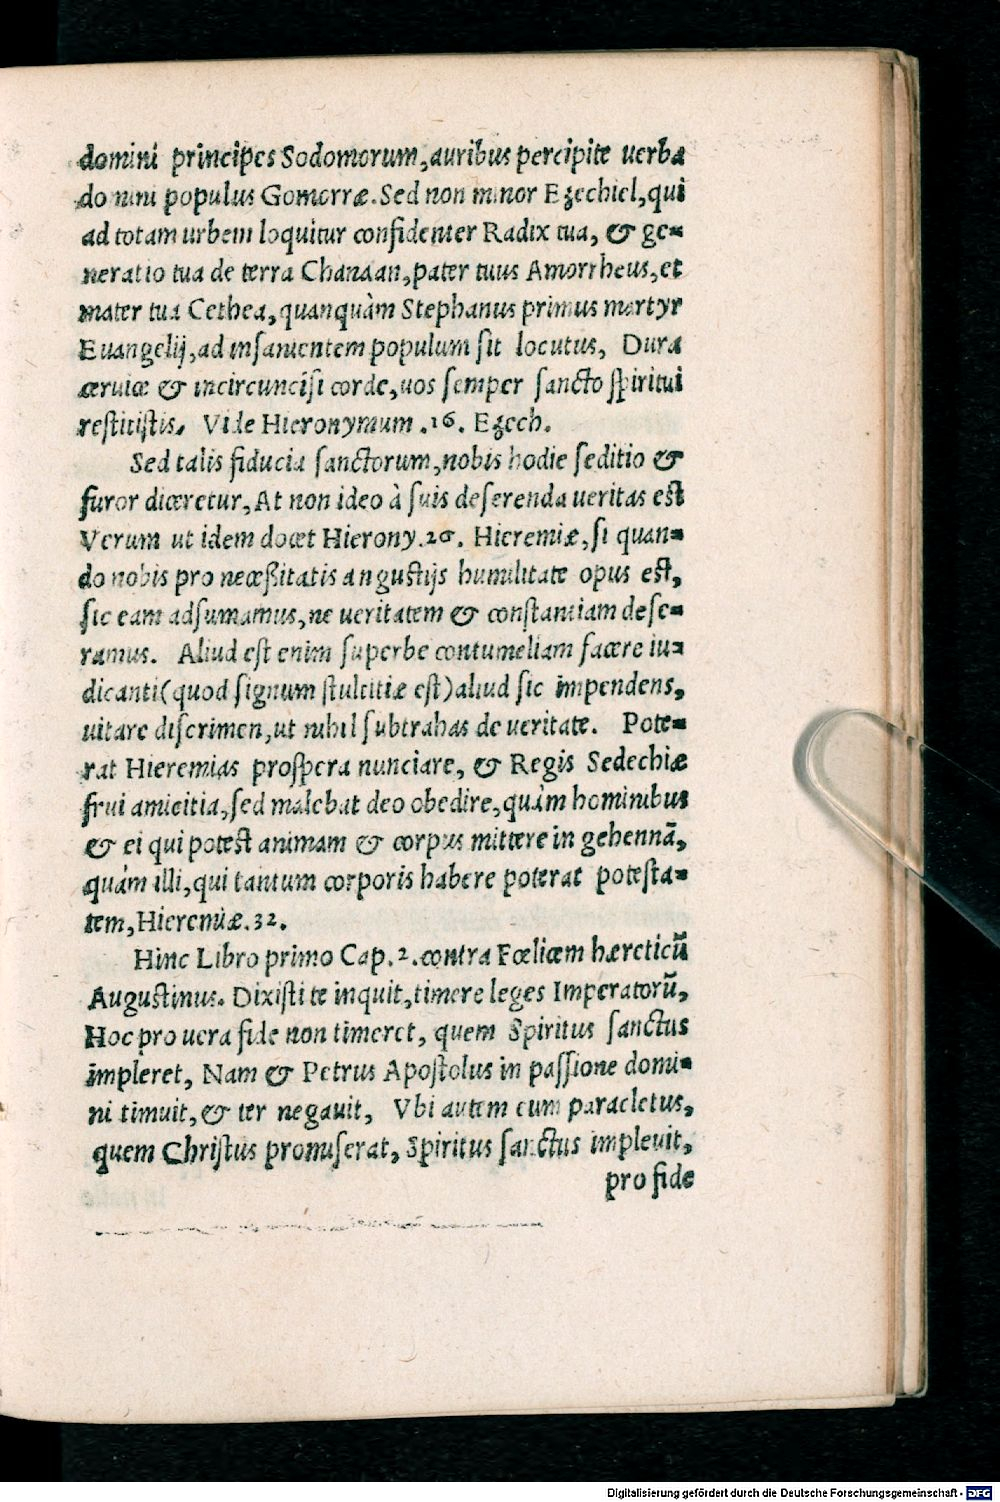 domini principes Sodomorum, auribus percipite uerba
domini populus Gomorræ. Sed non minor Ezechiel, qui
ad totam urbem loquitur confidenter Radix tua, & ge-
neratio tua de terra Chanaan, pater tuus Amorrheus, et
mater tua Cethea, quanquàm Stephanus primus martyr
Euangelij, ad insanientem populum sit locutus, Dura
ceruice & incircuncisi corde, uos semper sancto spiritui
restitistis. Vide Hieronymum .16. Ezech.
Sed talis fiducia sanctorum, nobis hodie seditio &
furor diceretur, At non ideo à suis deserenda ueritas est
Verum ut idem docet Hierony. 26. Hieremiæ, si quan-
do nobis pro necessitatis angustijs humilitate opus est,
sic eam adsumamus, ne ueritatem & constantiam dese-
ramus. Aliud est enim superbe contumeliam facere iu-
dicanti (quod signum stulcitiæ est) aliud sic impendens,
uitare discrimen, ut nihil subtrahas de ueritate. Pote-
rat Hieremias prospera nunciare, & Regis Sedechiæ
frui amicitia, sed malebat deo obedire, quàm hominibus
& ei qui potest animam & corpus mittere in gehennã,
quàm illi, qui tantum corporis habere poterat potesta-
tem, Hieremiæ. 32.
Hinc Libro primo Cap. 2. contra Fœlicem hæreticũ
Augustinus. Dixisti te inquit, timere leges Imperatorũ,
Hoc pro uera fide non timeret, quem Spiritus sanctus
impleret, Nam & Petrus Apostolus in passione domi-
ni timuit, & ter negauit, Vbi autem eum paracletus,
quem Christus promiserat, Spiritus sanctus impleuit,
pro fide
Digitalisierung gefördert durch die Deutsche Forschungsgemeinschaft - DFG